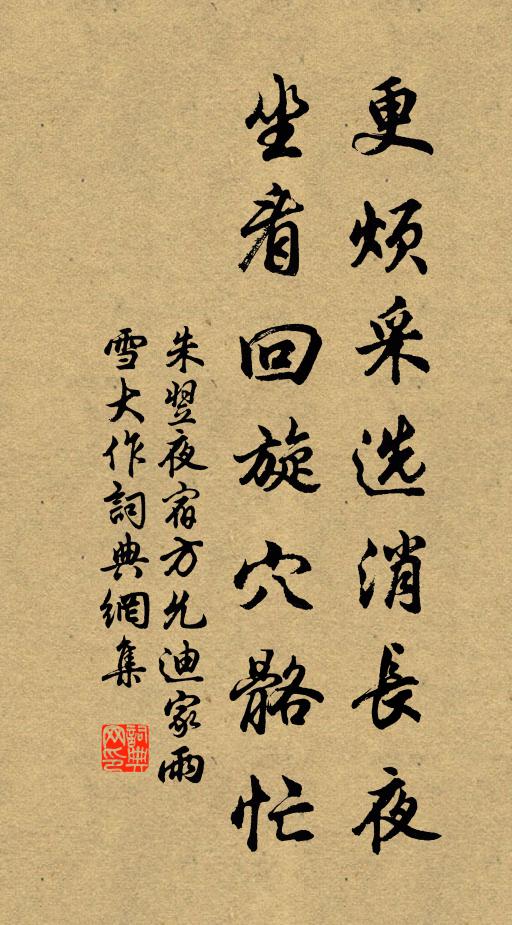 更烦采选消長夜
坐看回旋穴骼忙
朱翌夜宿方允迪家雨
雪大作詞典網集
詞典网印